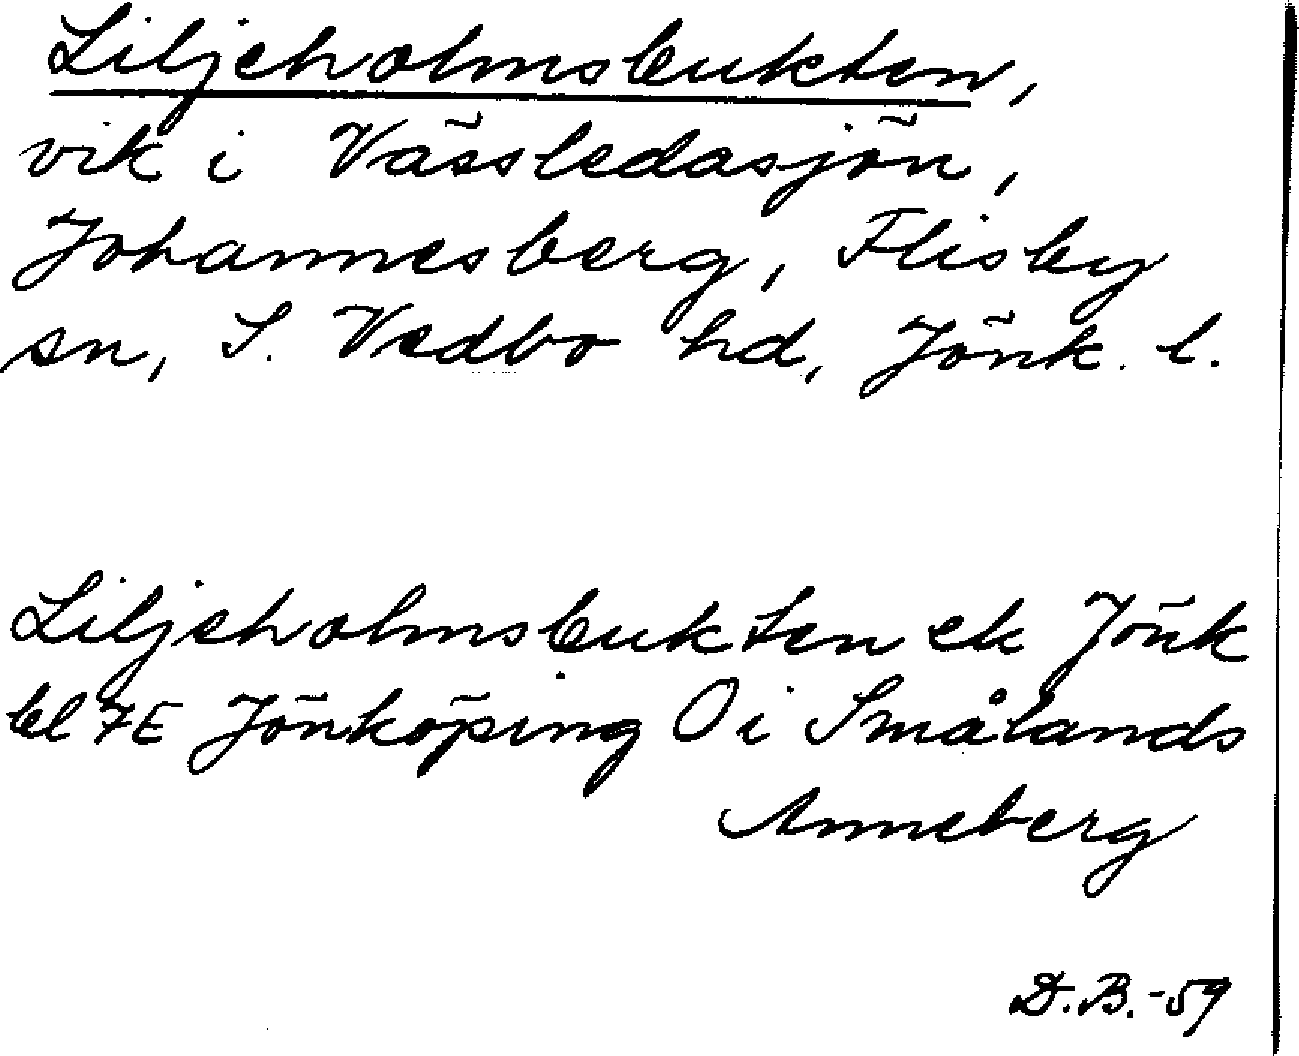 Liljeholmsbukten,
vik i Vässledasjön,
Johannesberg, Flisby
sn, S. Vedbo hd, Jönk. l.
Liljeholmsbukten ek Jönk
bl 7E Jönköping O i Smålands
Anneberg
D.B.-59